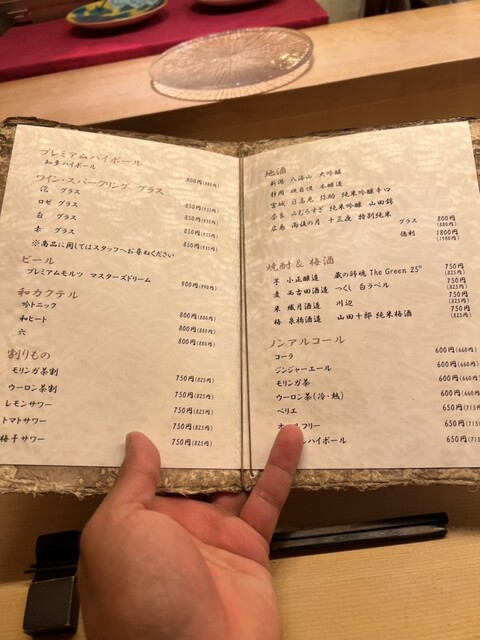 プレミアムハイボール
知多ハイボール 800円(880円)
ワイン・スパークリング グラス
泡 グラス 850円(935円)
ロゼ グラス 850円(935円)
白 グラス 850円(935円)
赤 グラス 850円(935円)
※商品に関してはスタッフへお尋ねください
ビール
プレミアムモルツ マスターズドリーム 900円(990円)
和カクテル
吟トニック 800円(880円)
和ヒート 800円(880円)
六 800円(880円)
割りもの
モリンガ茶割 750円(825円)
ウーロン茶割 750円(825円)
レモンサワー 750円(825円)
トマトサワー 750円(825円)
梅干サワー 750円(825円)
地酒
新潟 八海山 大吟醸
静岡 磯自慢 本醸造
宮城 日高見 弥助 純米吟醸辛口
奈良 みむろすぎ 純米吟醸 山田錦
広島 雨後の月 十三夜 特別純米
グラス 800円(880円)
徳利 1800円(1980円)
焼酎 & 梅酒
芋 小正醸造 蔵の師魂 The Green 25° 750円(825円)
麦 西吉田酒造 つくし 白ラベル 750円(825円)
米 繊月酒造 川辺 750円(825円)
梅 泉橋酒造 山田十郎 純米梅酒 750円(825円)
ノンアルコール
コーラ 600円(660円)
ジンジャーエール 600円(660円)
モリンガ茶 600円(660円)
ウーロン茶(冷・熱) 600円(660円)
ペリエ 650円(715円
フリー 650円(715
ルハイボール 650円(715